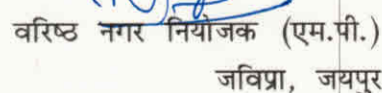 वरिष्ठ नगर नियोजक (एम.पी.)
जविप्रा, जयपुर